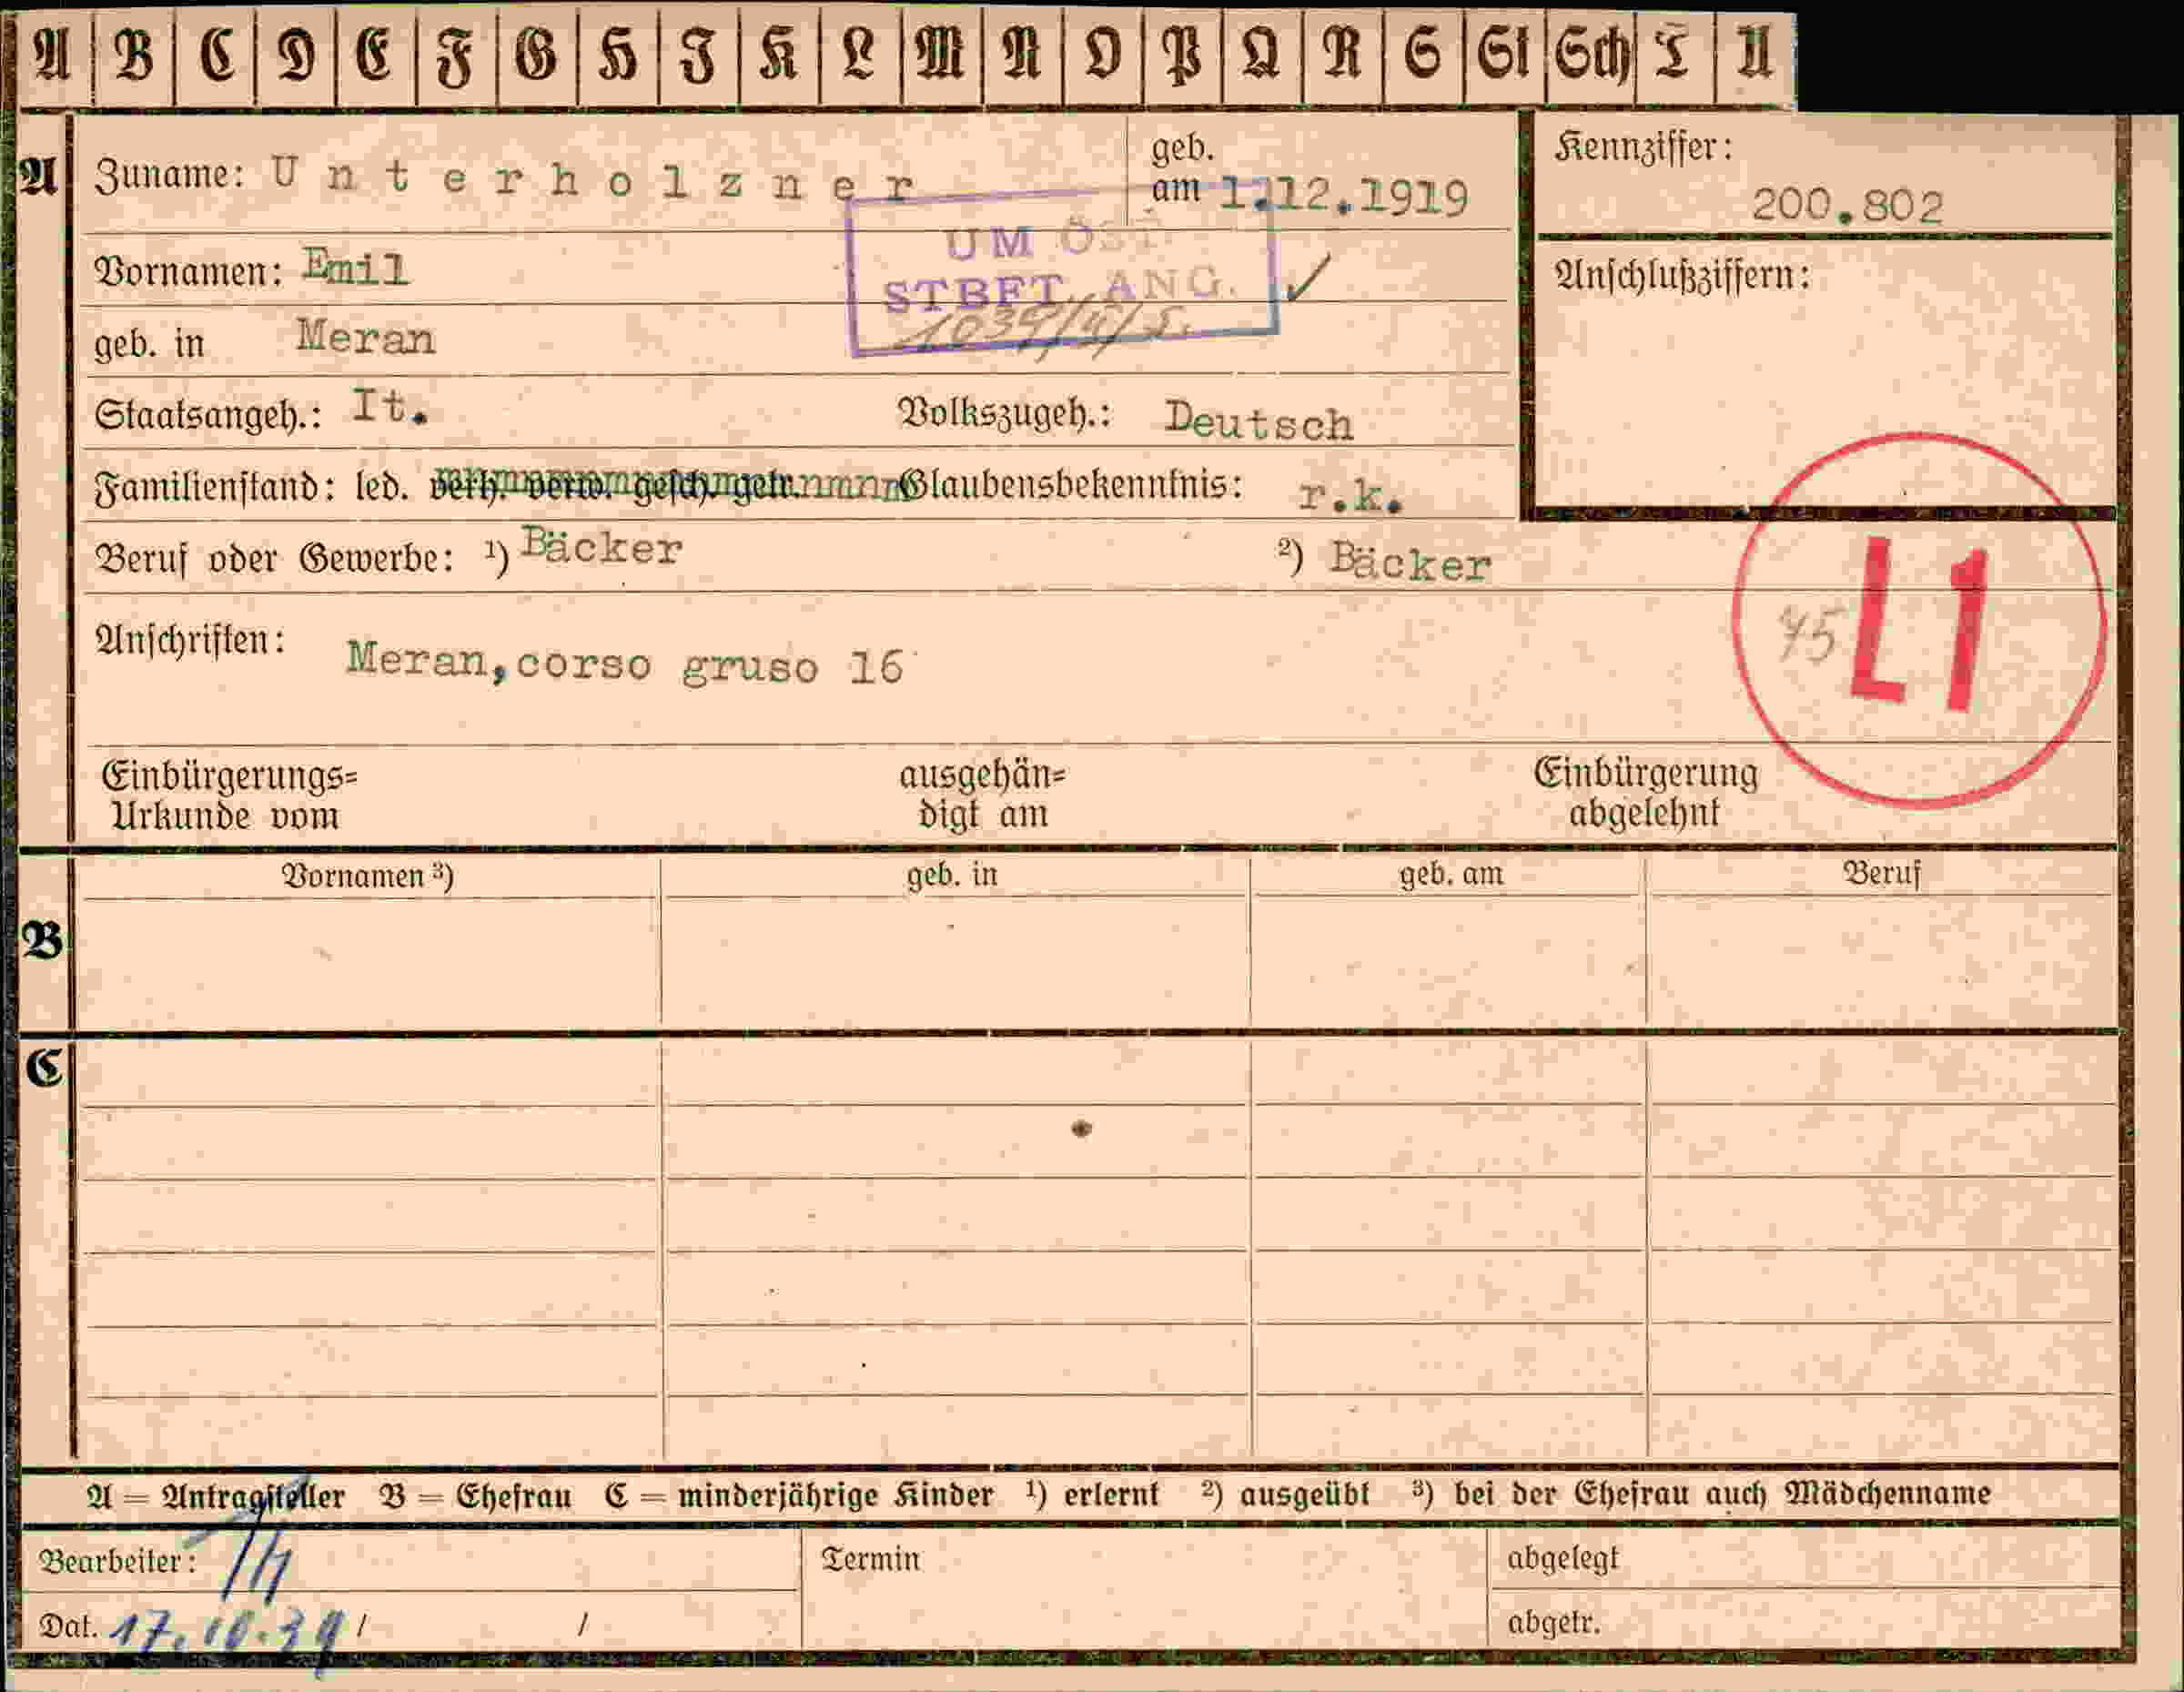 A B C D E F G H I K L M N O P Q R S St Sch T U
A
Zuname: Unterholzner geb. am 1.12.1919
Kennziffer: 200.802
UM ÖST.
STBFT. ANG.
Vornamen: Emil
Anschlußziffern:
geb. in Meran
Staatsangeh.: It. Volkszugeh.: Deutsch
Familienstand: led. verh. verw. gesch. getr. Glaubensbekenntnis: r.k.
Beruf oder Gewerbe: ¹) Bäcker ²) Bäcker
75 L1
Anschriften: Meran,corso gruso 16
Einbürgerungs= ausgehän= Einbürgerung
Urkunde vom digt am abgelehnt
Vornamen ³) geb. in geb. am Beruf
B
C
A = Antragsteller B = Ehefrau C = minderjährige Kinder ¹) erlernt ²) ausgeübt ³) bei der Ehefrau auch Mädchenname
Bearbeiter: Termin abgelegt
Dat. 17.10.39 / / abgetr.